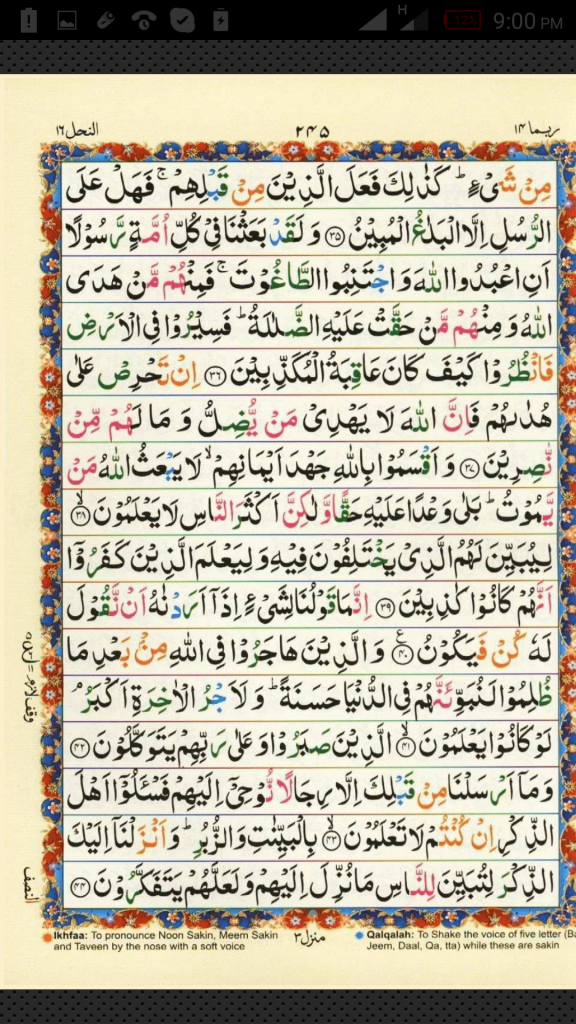 H
12%
9:00 PM
ربما ١٤
٢٤٥
النحل ١٦
مِنْ شَیْءٍ ؕ كَذٰلِكَ فَعَلَ الَّذِیْنَ مِنْ قَبْلِهِمْ ۚ فَهَلْ عَلَی
الرُّسُلِ اِلَّا الْبَلٰغُ الْمُبِیْنُ ﴿۳۵﴾ وَ لَقَدْ بَعَثْنَا فِیْ كُلِّ اُمَّةٍ رَّسُوْلًا
اَنِ اعْبُدُوا اللّٰهَ وَ اجْتَنِبُوا الطَّاغُوْتَ ۚ فَمِنْهُمْ مَّنْ هَدَی
اللّٰهُ وَ مِنْهُمْ مَّنْ حَقَّتْ عَلَیْهِ الضَّلٰلَةُ ؕ فَسِیْرُوْا فِی الْاَرْضِ
فَانْظُرُوْا كَیْفَ كَانَ عَاقِبَةُ الْمُكَذِّبِیْنَ ﴿۳۶﴾ اِنْ تَحْرِصْ عَلٰی
هُدٰىهُمْ فَاِنَّ اللّٰهَ لَا یَهْدِیْ مَنْ یُّضِلُّ وَ مَا لَهُمْ مِّنْ
نّٰصِرِیْنَ ﴿۳۷﴾ وَ اَقْسَمُوْا بِاللّٰهِ جَهْدَ اَیْمَانِهِمْ ۙ لَا یَبْعَثُ اللّٰهُ مَنْ
یَّمُوْتُ ؕ بَلٰی وَعْدًا عَلَیْهِ حَقًّا وَّ لٰكِنَّ اَكْثَرَ النَّاسِ لَا یَعْلَمُوْنَ ﴿۳۸﴾ ۙ
لِیُبَیِّنَ لَهُمُ الَّذِیْ یَخْتَلِفُوْنَ فِیْهِ وَ لِیَعْلَمَ الَّذِیْنَ كَفَرُوْۤا
اَنَّهُمْ كَانُوْا كٰذِبِیْنَ ﴿۳۹﴾ اِنَّمَا قَوْلُنَا لِشَیْءٍ اِذَاۤ اَرَدْنٰهُ اَنْ نَّقُوْلَ
لَهٗ كُنْ فَیَكُوْنُ ﴿۴۰﴾ ع وَ الَّذِیْنَ هَاجَرُوْا فِی اللّٰهِ مِنْۢ بَعْدِ مَا
ظُلِمُوْا لَنُبَوِّئَنَّهُمْ فِی الدُّنْیَا حَسَنَةً ؕ وَ لَاَجْرُ الْاٰخِرَةِ اَكْبَرُ ۘ
لَوْ كَانُوْا یَعْلَمُوْنَ ﴿۴۱﴾ ۙ الَّذِیْنَ صَبَرُوْا وَ عَلٰی رَبِّهِمْ یَتَوَكَّلُوْنَ ﴿۴۲﴾
وَ مَاۤ اَرْسَلْنَا مِنْ قَبْلِكَ اِلَّا رِجَالًا نُّوْحِیْۤ اِلَیْهِمْ فَسْـَٔلُوْۤا اَهْلَ
الذِّكْرِ اِنْ كُنْتُمْ لَا تَعْلَمُوْنَ ﴿۴۳﴾ ۙ بِالْبَیِّنٰتِ وَ الزُّبُرِ ؕ وَ اَنْزَلْنَاۤ اِلَیْكَ
الذِّكْرَ لِتُبَیِّنَ لِلنَّاسِ مَا نُزِّلَ اِلَیْهِمْ وَ لَعَلَّهُمْ یَتَفَكَّرُوْنَ ﴿۴۴﴾
وقف لازم
النصف
منزل ٣
Ikhfaa: To pronounce Noon Sakin, Meem Sakin
and Taveen by the nose with a soft voice
Qalqalah: To Shake the voice of five letter (Ba
Jeem, Daal, Qa, tta) while these are sakin